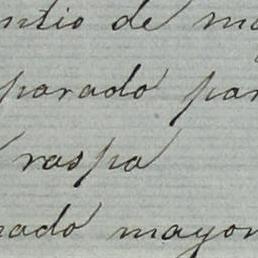 ntio de m
parado par
raspa
rado mayor